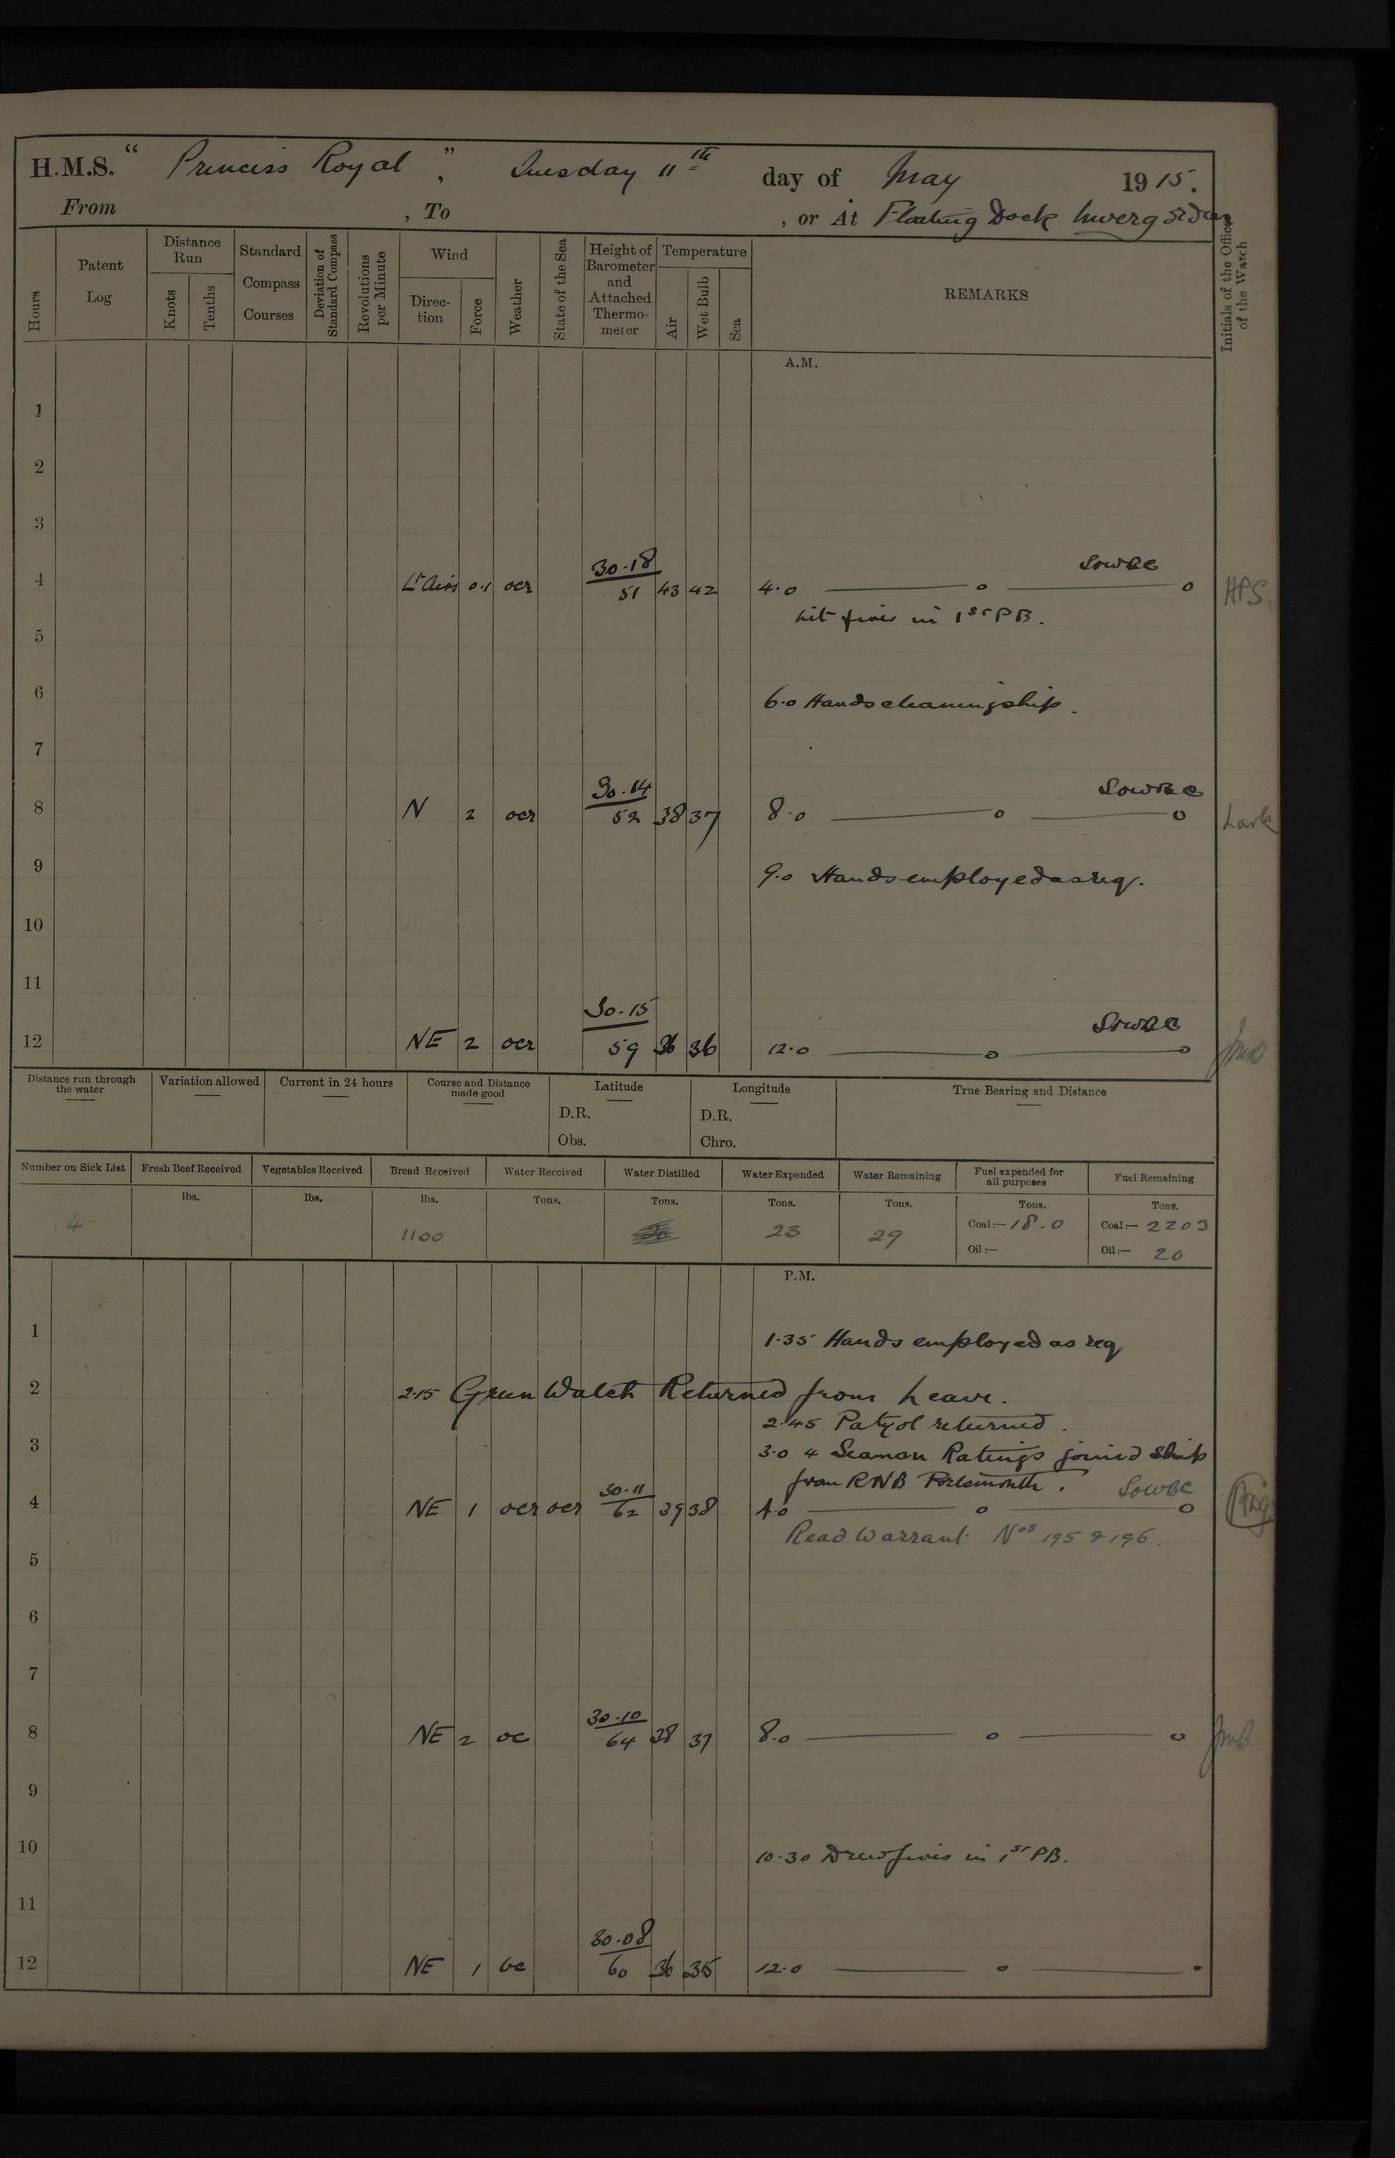 H.M.S. "Princess Royal", Tuesday 11th day of May 1915.
From , To , or At Floating Dock Invergordon
Hours
Patent Log
Distance Run
Knots
Tenths
Standard Compass Courses
Deviation of Standard Compass
Revolutions per Minute
Wind
Direction
Force
Weather
State of the Sea
Height of Barometer and Attached Thermometer
Temperature
Air
Wet Bulb
Sea
REMARKS
Initials of the Officer of the Watch
A.M.
1
2
3
4 Lt Airs 0.1 ocr 30.18 51 43 42 4.0 — o — o HPS
Lit fires in 1st PB.
5
6 6.0 Hands cleaning ship.
7
8 N 2 ocr 30.14 52 38 37 8.0 — o — o
9 9.0 Hands employed as req.
10
11
12 NE 2 ocr 30.15 59 36 36 12.0 — o — o
Distance run through the water
Variation allowed
Current in 24 hours
Course and Distance made good
Latitude
D.R.
Obs.
Longitude
D.R.
Chro.
True Bearing and Distance
Number on Sick List
Fresh Beef Received
Vegetables Received
Bread Received
Water Received
Water Distilled
Water Expended
Water Remaining
Fuel expended for all purposes
Fuel Remaining
lbs. lbs. lbs. Tons. Tons. Tons. Tons. Tons. Tons.
4 1100 23 29 Coal:— 18.0 Coal:— 2203
Oil:— Oil:— 20
P.M.
1 1.35 Hands employed as req
2 2.15 Green Watch Returned from Leave.
2.45 Patrol returned.
3 3.0 4 Seaman Ratings joined ship
from RNB Portsmouth.
4 NE 1 ocr ocr 30.11 62 39 38 4.0 — o — o
Read Warrant Nos 195 & 196.
5
6
7
8 NE 2 oc 30.10 64 38 37 8.0 — o — o
9
10 10.30 Drew fires in 1st PB.
11
12 NE 1 bc 30.08 60 36 35 12.0 — o —